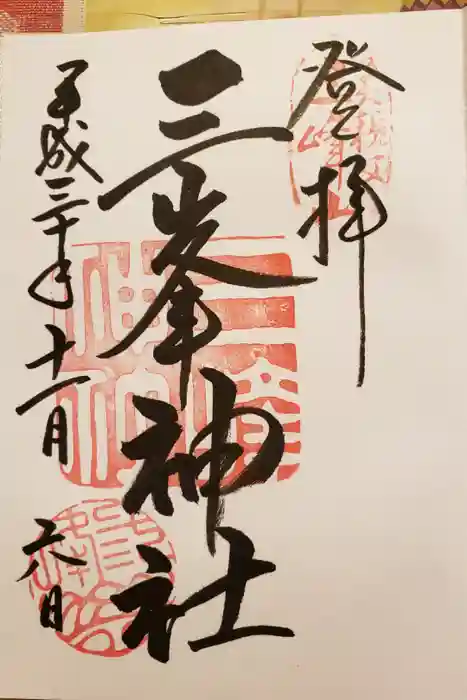 登拝
三峯神社
平成三十年十一月六日
三峯神社